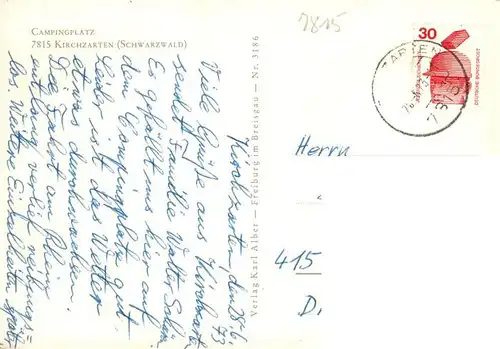 CAMPINGPLATZ
7815 KIRCHZARTEN (SCHWARZWALD)
7815
Kirchzarten, den 28.6.73
Viele Grüße aus Kirchzarten
sendet Familie Walter
Es gefällt uns hier auf
dem Campingplatz gut.
Leider ist das Wetter
etwas durchwachsen.
Die Fahrt am Rhein
entlang verlief reibungs=
los. Weitere Einzelheiten später.
Verlag Karl Alber — Freiburg im Breisgau — Nr. 3186
30
DEUTSCHE BUNDESPOST
Herrn
415
D.